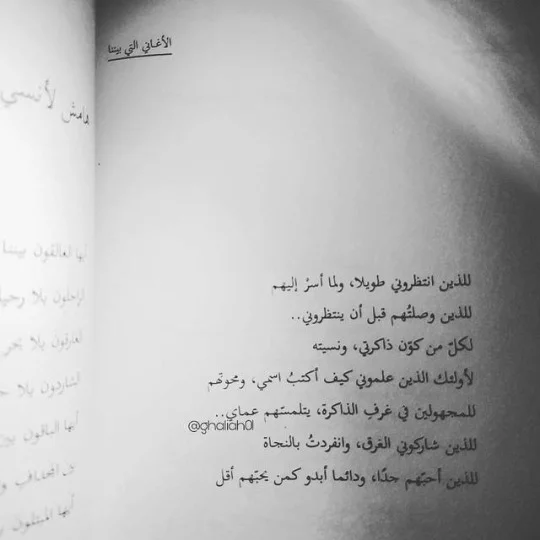 الأغاني التي بيننا
للذين انتظروني طويلا، ولما أسرْ إليهم
للذين وصلتُهم قبل أن ينتظروني..
لكلّ من كوّن ذاكرتي، ونسيته
لأولئك الذين علموني كيف أكتبُ اسمي، ومحوتهم
للمجهولين في غرفِ الذاكرة، يتلمسّهم عماي..
@ghaliah01
للذين شاركوني الغرق، وانفردتُ بالنجاة
للذين أحبّهم جدّا، ودائما أبدو كمن يحبّهم أقل
هامش
أيها العالقون بيننا
الراحلون بلا
بلا
بلا
أيها
أيها